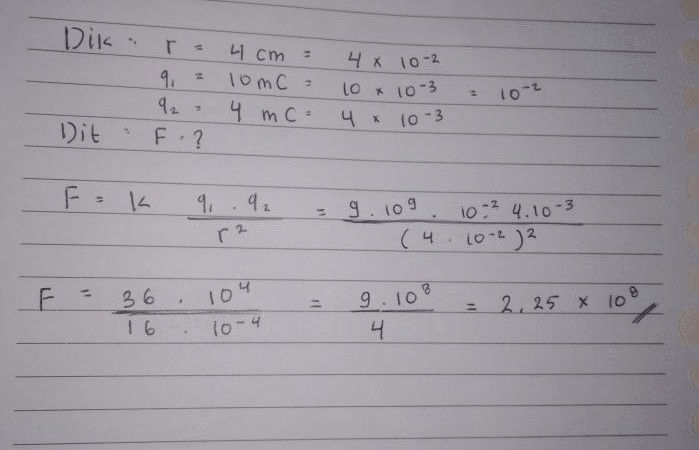 Dik : r = 4 cm = 4 × 10⁻²
q₁ = 10 mC = 10 × 10⁻³ = 10⁻²
q₂ = 4 mC = 4 × 10⁻³
Dit : F . ?
F = k q₁ . q₂ / r² = 9 . 10⁹ . 10⁻² . 4 . 10⁻³ / (4 . 10⁻²)²
F = 36 . 10⁴ / 16 . 10⁻⁴ = 9 . 10⁸ / 4 = 2,25 × 10⁸ //